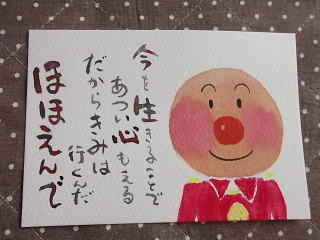 今を生きることで
あつい心もえる
だからきみは
行くんだ
ほほえんで